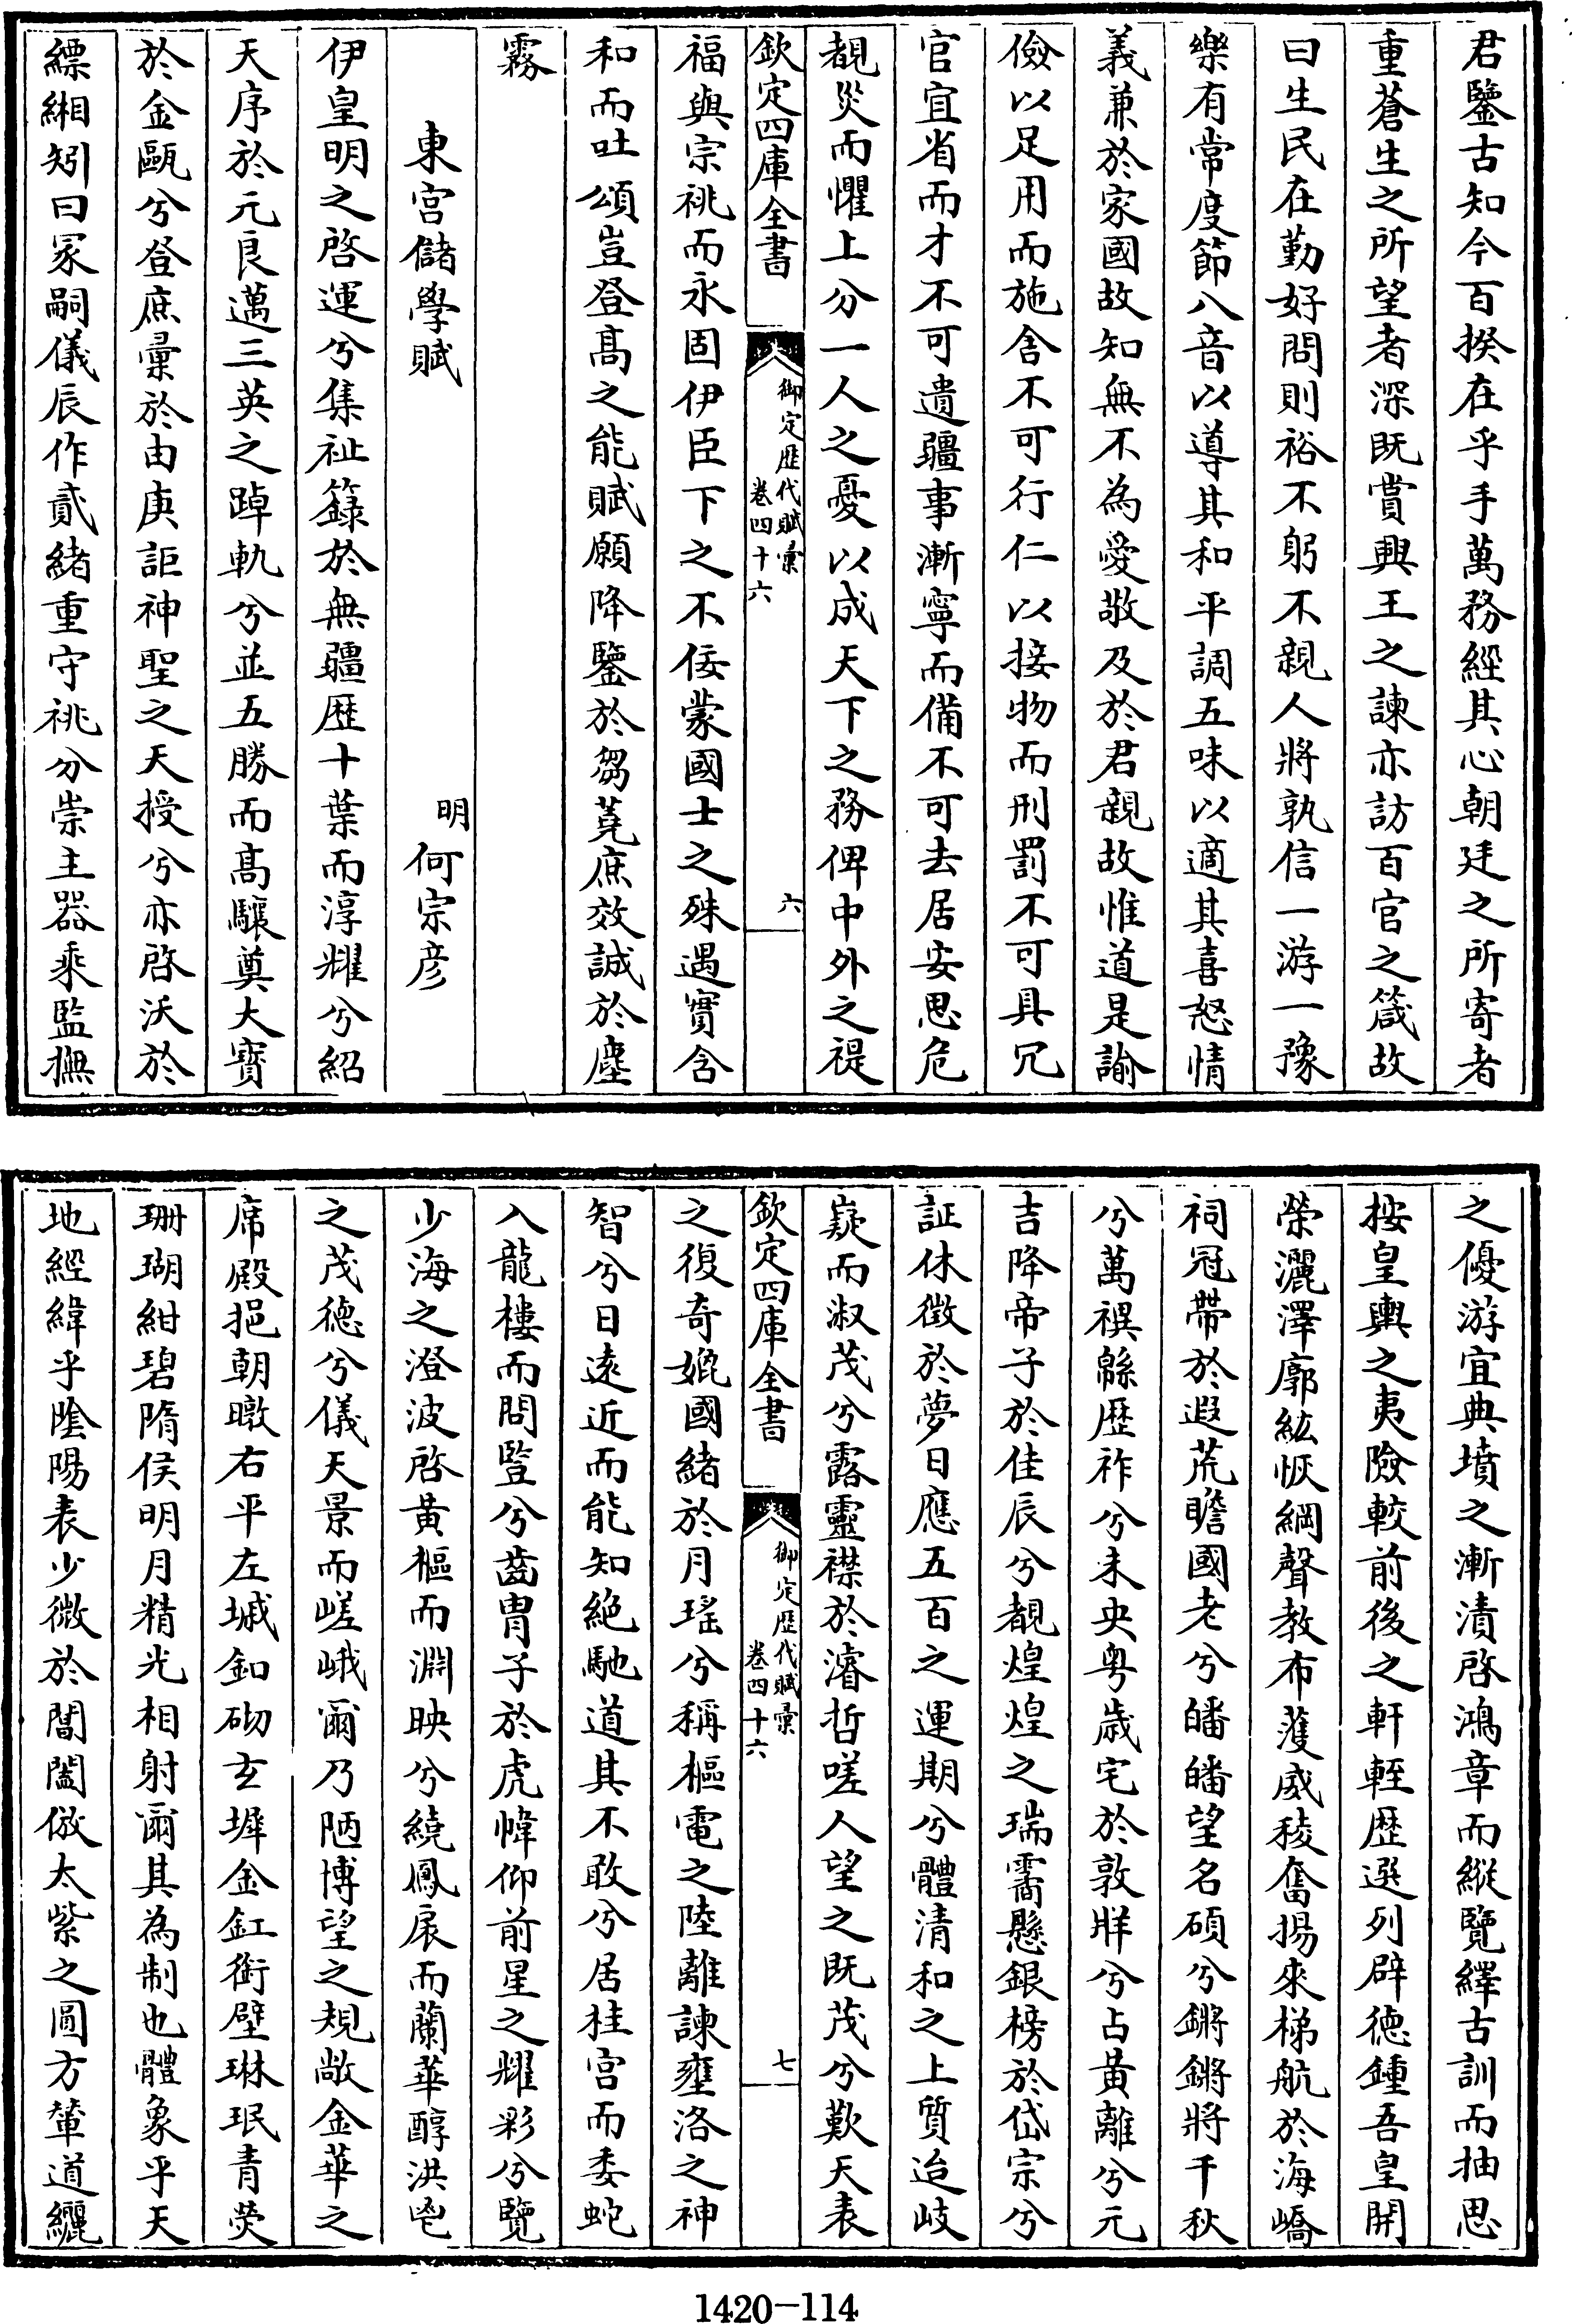 君鑒古知今百揆在乎手萬務經其心朝廷之所寄者
重蒼生之所望者深既賞興王之諫亦訪百官之箴故
曰生民在勤好問則裕不躬不親人將孰信一游一豫
樂有常度節八音以導其和平調五味以適其喜怒情
義兼於家國故知無不為愛敬及於君親故惟道是諭
儉以足用而施舍不可行仁以接物而刑罰不可具冗
官宜省而才不可遺疆事漸寧而備不可去居安思危
覩災而懼上分一人之憂以成天下之務俾中外之禔
欽定四庫全書
御定歴代賦彙
卷四十六
六
福與宗祧而永固伊臣下之不佞蒙國士之殊遇實含
和而吐頌豈登高之能賦願降鑒於芻蕘庶效誠於塵
霧
東宮儲學賦
明何宗彦
伊皇明之啓運兮集祉籙於無疆歴十葉而淳耀兮紹
天序於元良邁三英之踔軌兮並五勝而高驤奠大寳
於金甌兮登庶彙於由庚詎神聖之天授兮亦啓沃於
縹緗矧曰冡嗣儀辰作貳緒重守祧分崇主器乘監撫
之優游宜典墳之漸漬啓鴻章而縱覽繹古訓而抽思
按皇輿之夷險較前後之軒輊歴選列辟德鍾吾皇開
榮灑澤廓紘恢綱聲教布濩威稜奮揚來梯航於海嶠
祠冠帶於遐荒瞻國老兮皤皤望名碩兮鏘鏘將千秋
兮萬禩緜歴祚兮未央粤歳宅於敦牂兮占黄離兮元
吉降帝子於佳辰兮覩煌煌之瑞霱懸銀榜於岱宗兮
証休徴於夢日應五百之運期兮體清和之上質迨岐
嶷而淑茂兮露靈襟於濬哲嗟人望之既茂兮歎天表
欽定四庫全書
御定歴代賦彙
卷四十六
七
之復奇媲國緒於月瑤兮稱樞電之陸離諫壅洛之神
智兮日逺近而能知絶馳道其不敢兮居桂宫而委蛇
入龍樓而問豎兮齒胄子於虎幃仰前星之耀彩兮覽
少海之澄波啓黄樞而淵映兮繞鳳扆而蘭華醇洪鬯
之茂德兮儀天景而嵯峨爾乃陋博望之規敞金華之
席殿挹朝暾右平左墄釦砌玄墀金釭銜壁琳珉青熒
珊瑚紺碧隋侯明月精光相射爾其為制也體象乎天
地經緯乎隂陽表少微於閶闔倣太紫之圓方輦道纚
1420-114